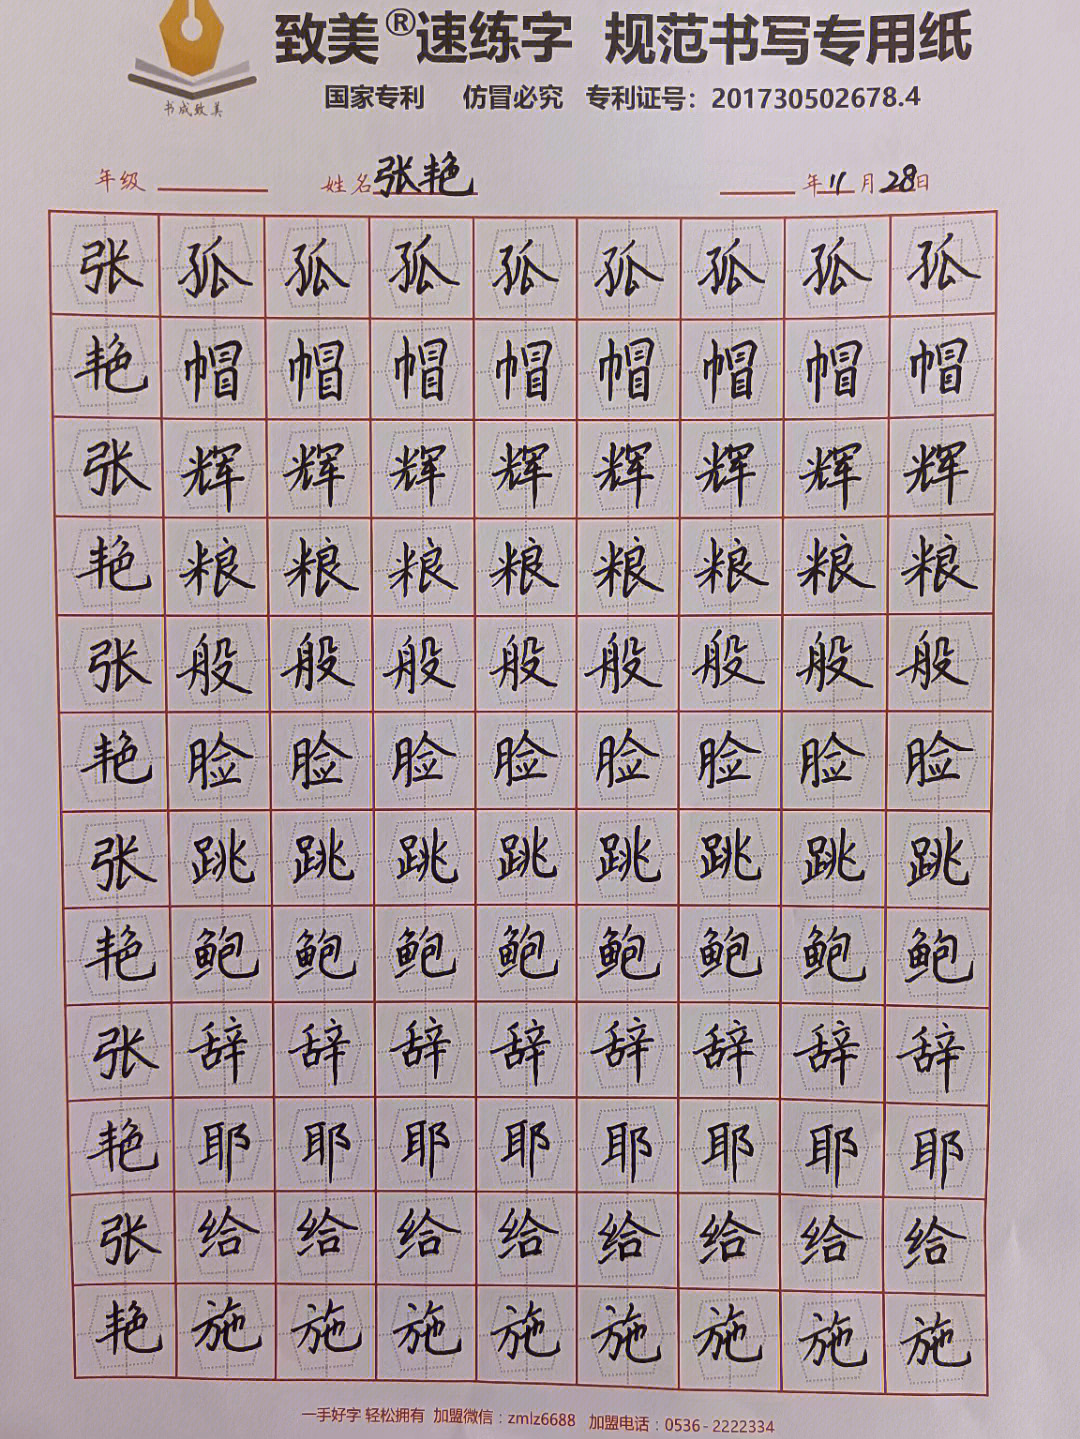 致美®速练字 规范书写专用纸
书成致美
国家专利 仿冒必究 专利证号：201730502678.4
年级 姓名 张艳 年 11 月 28 日
张 孤 孤 孤 孤 孤 孤 孤 孤
艳 帽 帽 帽 帽 帽 帽 帽 帽
张 辉 辉 辉 辉 辉 辉 辉 辉
艳 粮 粮 粮 粮 粮 粮 粮 粮
张 般 般 般 般 般 般 般 般
艳 脸 脸 脸 脸 脸 脸 脸 脸
张 跳 跳 跳 跳 跳 跳 跳 跳
艳 鲍 鲍 鲍 鲍 鲍 鲍 鲍 鲍
张 辞 辞 辞 辞 辞 辞 辞 辞
艳 耶 耶 耶 耶 耶 耶 耶 耶
张 给 给 给 给 给 给 给 给
艳 施 施 施 施 施 施 施 施
一手好字 轻松拥有 加盟微信：zmlz6688 加盟电话：0536-2222334